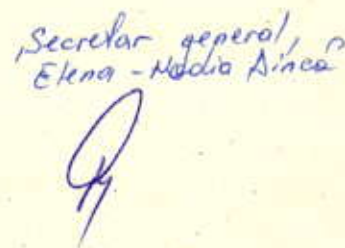 Secretar general,
Elena - Nadia Dincă